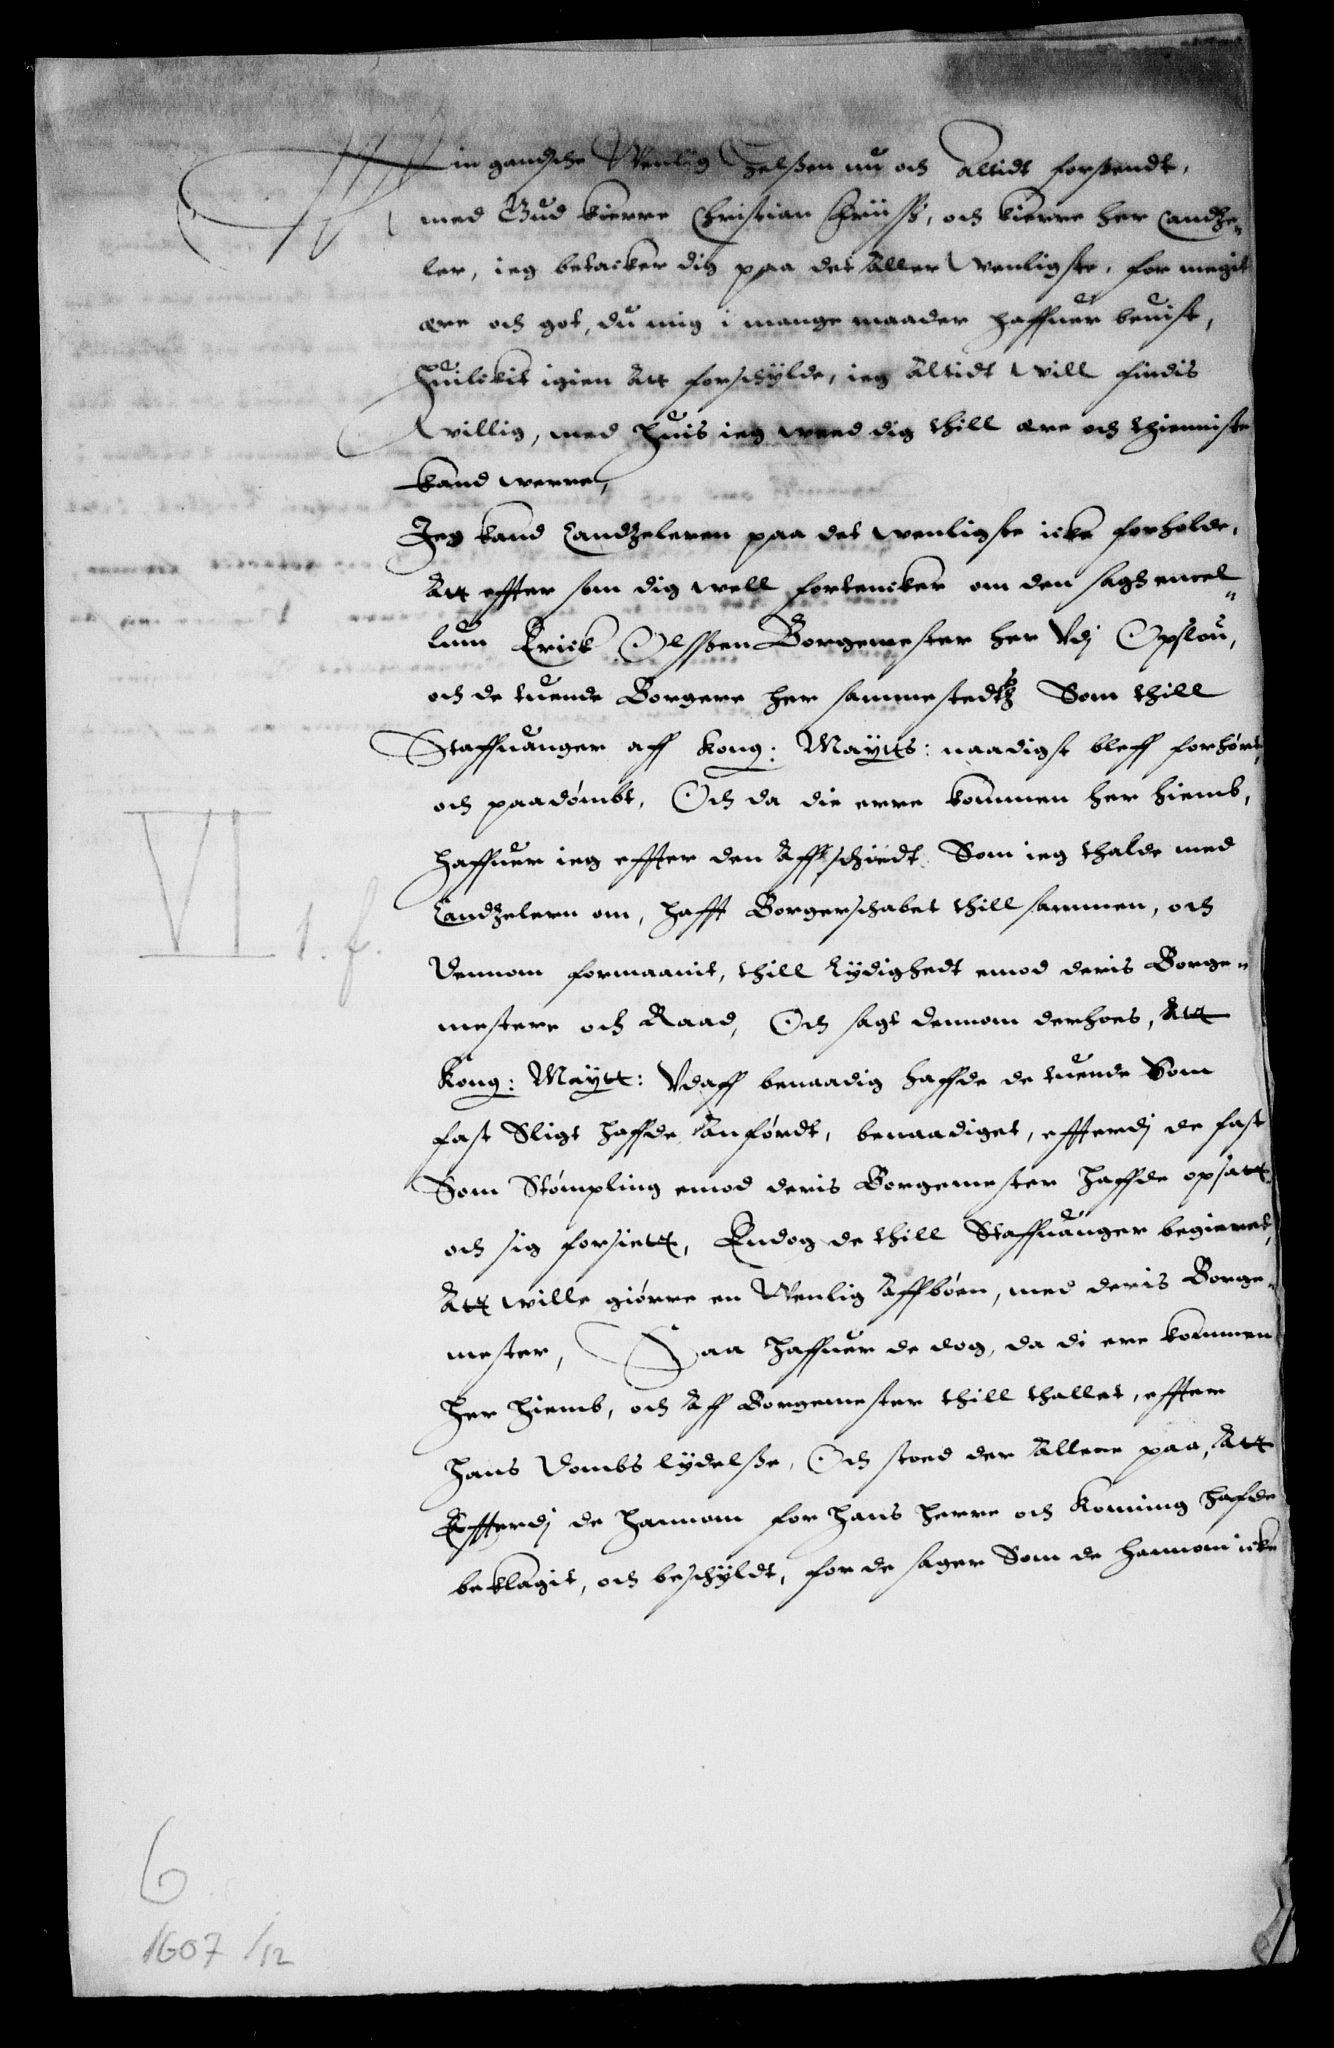 Min gandsche Wenlig Helssen nu och Altidt forssendt,
med Gud kierre Christian Friiss, och kierre her Candze-
ler, ieg betacker dig paa det Aller Wenligste, for megit
ære och got, du mig i mange maader haffuer beuist,
Huilckit igien Att forschylde, ieg Altidt Will findis
Willig, med Huis ieg weed dig thill ære och thienniste
kand werre,
Jeg kand Candzeleren paa det wenligste icke forholde,
Att effter som dig well fortencker om den sagh emel
lum Erick Olssen Borgemester her Vdj Opslou,
och de tuende Borgere her sammestedtz Som thill
Staffuanger aff Kong: Maytts: naadigst bleff forhørt,
och paadømbt, Och da die erre kommen her hiemb,
Haffuer ieg effter den Affschiedt Som ieg thalde med
Candzelern om, hafft Borgerschabet thill sammen, och
dennom formaanit, thill Lydighedt emod deris Borge-
mestere och Raad, Och sagt dennom derhoes, Att
Kong: Maytt: Vdaff benaadig haffde de tuende Som
fast Sligt haffde Anførdt, benaadiget, effterdj de fast
Som Stømpling emod deris Borgemester haffde opsatt
och sig forsiett, Endog de thill Staffuanger begieret,
Att wille giørre en Wenlig Affbøen, med deris Borge-
mester, Saa Haffuer de dog, da di ere kommen
her hiemb, och Aff Borgemester thill thallet, effter
hans Dombs lydelsse, Och stoed der Allene paa, Att
Effterdj de Hannom for hans Herre och Konning hafde
beklagit, och beschyldt, for de sager Som de hannom icke
VI 1. f.
6
1607 /12